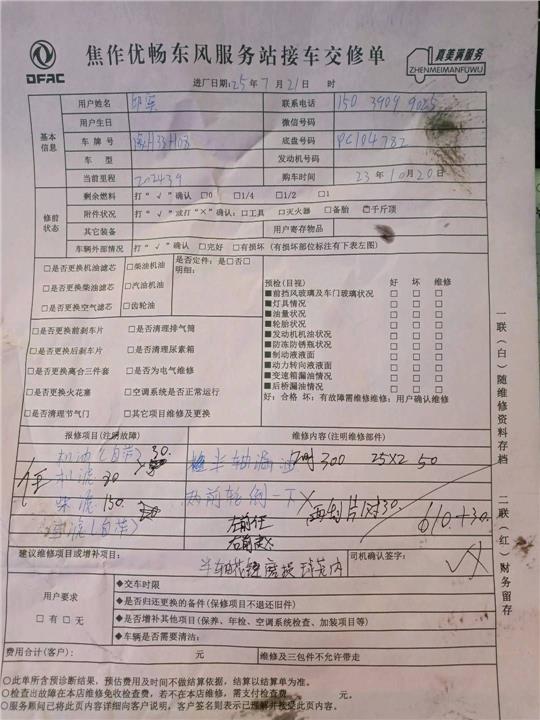 DFAC
焦作优畅东风服务站接车交修单
真美满服务
ZHENMEIMANFUWU
进厂日期:25年7月21日 时
基本信息
用户姓名 联系电话 150
用户生日 微信号码
车牌号 底盘号码 PC104782
车型 发动机号码
当前里程 202439 购车时间 23年10月20日
修前状态
剩余燃料 打“√”确认 □0 □1/4 □1/2 □1
附件状况 打“√”或打“×”确认:□工具 □灭火器 □备胎 □千斤顶
其它装备 用户寄存物品
车辆外部情况 打“√”确认 □完好 □有损坏(有损坏部位标注有下表左图)
□是否更换机油滤芯 □柴油机油 是否定件:是□否□
明细:
□是否更换柴油滤芯 □汽油机油
□是否更换空气滤芯 □齿轮油
预检(目视) 好 坏 维修
■前挡风玻璃及车门玻璃状况 □ □ □
■灯具情况 □ □ □
■油量状况 □ □ □
■轮胎状况 □ □ □
■发动机机油状况 □ □ □
■防冻防锈瓶状况 □ □ □
■制动液液面 □ □ □
■动力转向液液面 □ □ □
■变速箱漏油情况 □ □ □
■后桥漏油情况 □ □ □
好:合格 坏:有故障需维修维修:用户确认维修
□是否更换前刹车片 □是否清理排气筒
□是否更换后刹车片 □是否清理尿素箱
□是否更换离合三件套 □是否为电气维修
□是否更换火花塞 □空调系统是否正常运行
□是否清理节气门 □其它项目维修及更换
报修项目(注明故障) 维修内容(注明维修部件)
机油(自带) 30. 半轴漏油 300 25×2 50
机滤 30
柴滤 150 前轮倒一下 两刹片对30.
(自带) 左前 610+30.
右前
建议维修项目或增补项目: 司机确认签字:
半轴花键磨损
用户要求
□有□无
◆交车时限
◆是否归还更换的备件(保修项目不退还旧件)
◆是否增补其他项目(保养、年检、空调系统检查、加装项目等)
◆车辆是否需要清洁:
费用合计(客户): 元 维修及三包件不允许带走
○此单所含预诊断结果,预估费用及时间不做结算依据,结算以结算单为准。
○检查出故障在本店维修免收检查费,若不在本店维修,需支付检查费 元。
○服务顾问已将此页内容详细向客户说明,客户签名则表示已理解并接受此页内容。
一联(白)随维修资料存档 二联(红)财务留存